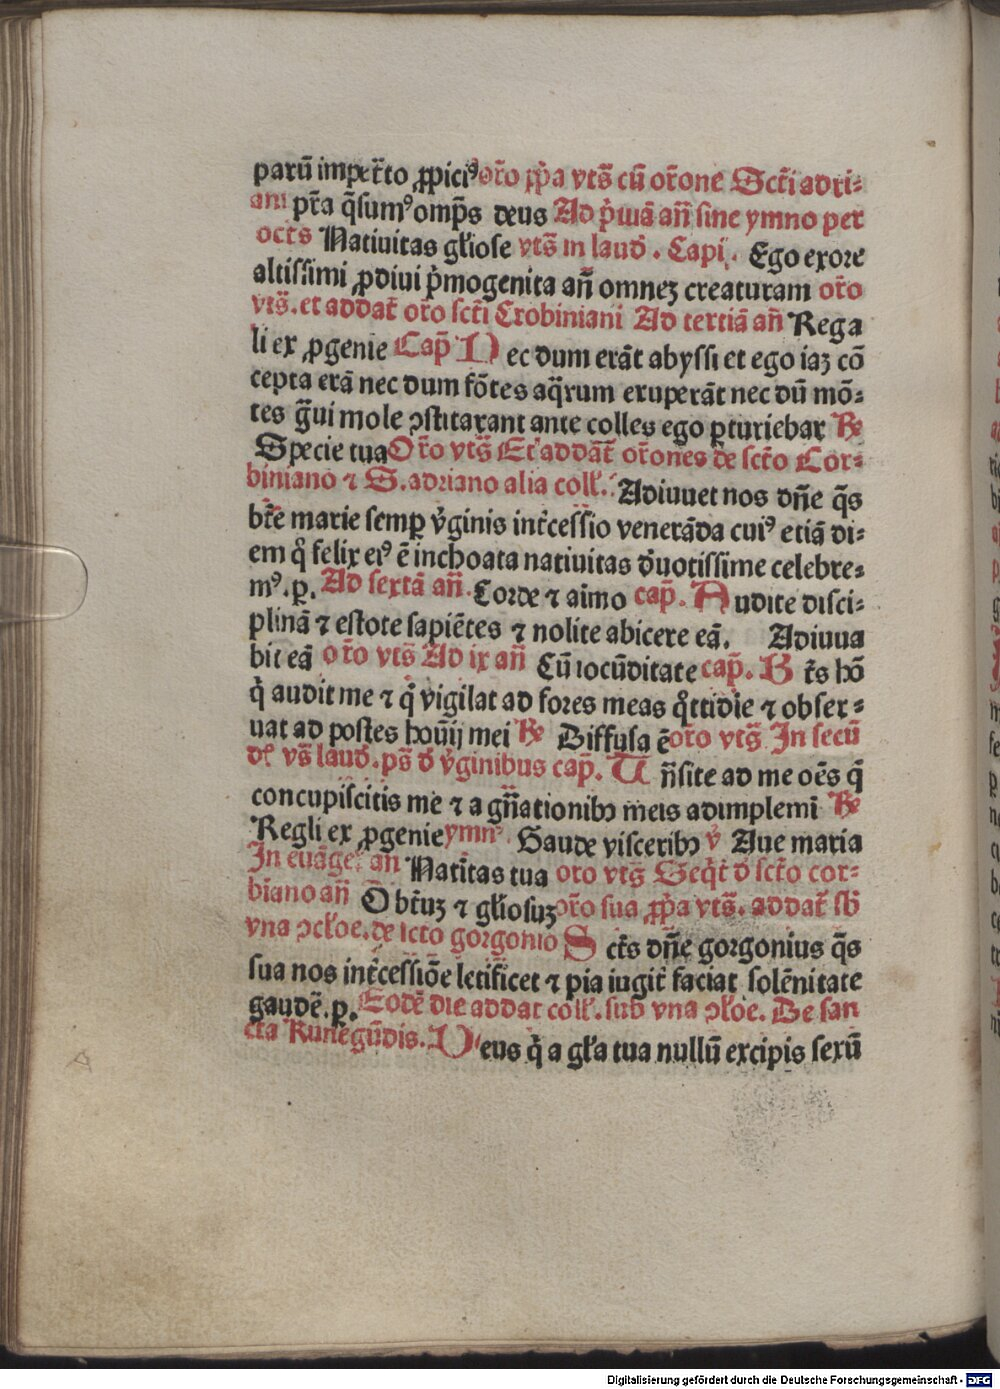 parū imper̄to ꝓpiciꝰ or̄o ꝓp̄a vts̄ cū or̄one Scti adri-
ani pr̄a q̄sumꝰ omp̄s deus Ad p̄mā an̄ sine ymno per
octs Natiuitas gl̄iose vts̄ in laud̄ . Capi. Ego ex ore
altissimi ꝓdiui p̄mogenita an̄ omnez creaturam or̄o
vts̄. et addat̄ or̄o scti Crobiniani Ad tertiā an̄ Rega
li ex ꝓgenie Cap̄ N ec dum erāt abyssi et ego iaz cō
cepta erā nec dum fōtes aq̄rum eruperāt nec dū mō-
tes g̃ui mole ↄstitarant ante colles ego ꝑturiebar ℞
Specie tua Or̄o vts̄ Et addāt̄ or̄ones de scto Cor-
biniano ⁊ S. adriano alia coll̄. Adiuuet nos dn̄e q̄s
bt̄e marie semꝑ v̄ginis int̄cessio venerāda cuiꝰ etiā di-
em q̊ felix eiꝰ ē inchoata natiuitas d̄uotissime celebre-
mꝰ. ꝑ. Ad sextā an̄. Corde ⁊ aimo cap̄. A udite disci-
plinā ⁊ estote sapiētes ⁊ nolite abicere eā. Adiuua
bit eā or̄o vts̄ Ad ix an̄ Cū iocūditate cap̄. B t̄s hō
q̄ audit me ⁊ q̄ vigilat ad fores meas q̊ttidie ⁊ obser-
uat ad postes hou̅ij mei ℞ Diffusa ē or̄o vts̄ In secū
dꝭ vs̄ laud̄. ps̄ d̄ v̄ginibus cap̄. T n̄site ad me oēs q̄
concupiscitis me ⁊ a gn̄ationibꝫ meis adimplemī ℞
Regli ex ꝓgenie ymnꝰ. Gaude visceribꝫ v̄ Aue maria
In euāge. an̄ Nat̄itas tua or̄o vts̄ Seq̄t̄ d̄ scto cor-
biano an̄ O bt̄uz ⁊ gl̄iosuz or̄o sua ꝓp̄a vts̄. addat̄ sb̄
vna ↄcl̄oe. de scto gorgonio S ct̄s dn̄e gorgonius q̄s
sua nos int̄cessiōe letificet ⁊ pia iugit̄ faciat solēnitate
gaudē. ꝑ. Eodē die addat coll̄. sub vna ↄl̄oe. De san
cta Kunegūdis. D eus q̄ a gl̄a tua nullū excipis sexū
Digitalisierung gefördert durch die Deutsche Forschungsgemeinschaft - DFG